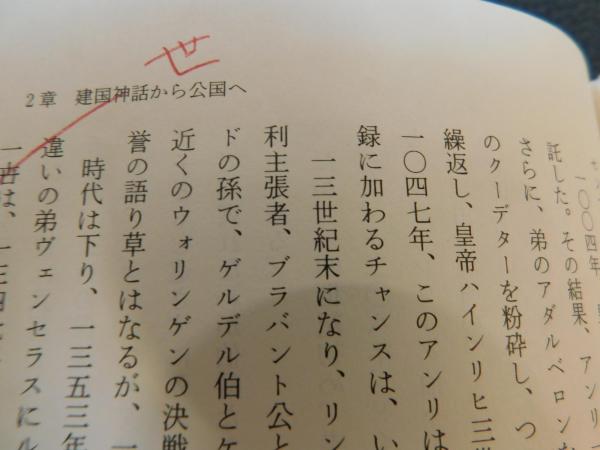 世
2章 建国神話から公国へ
一〇〇四年
託した。その結果、アンリ
さらに、弟のアダルベロン
のクーデターを粉砕し、つ
繰返し、皇帝ハインリヒ三世
一〇四七年、このアンリは
録に加わるチャンスは、い
一三世紀末になり、リン
利主張者、ブラバント公と
ドの孫で、ゲルデル伯とケ
近くのウォリンゲンの決戦
誉の語り草とはなるが、一
時代は下り、一三五三年
違いの弟ヴェンセラスにル